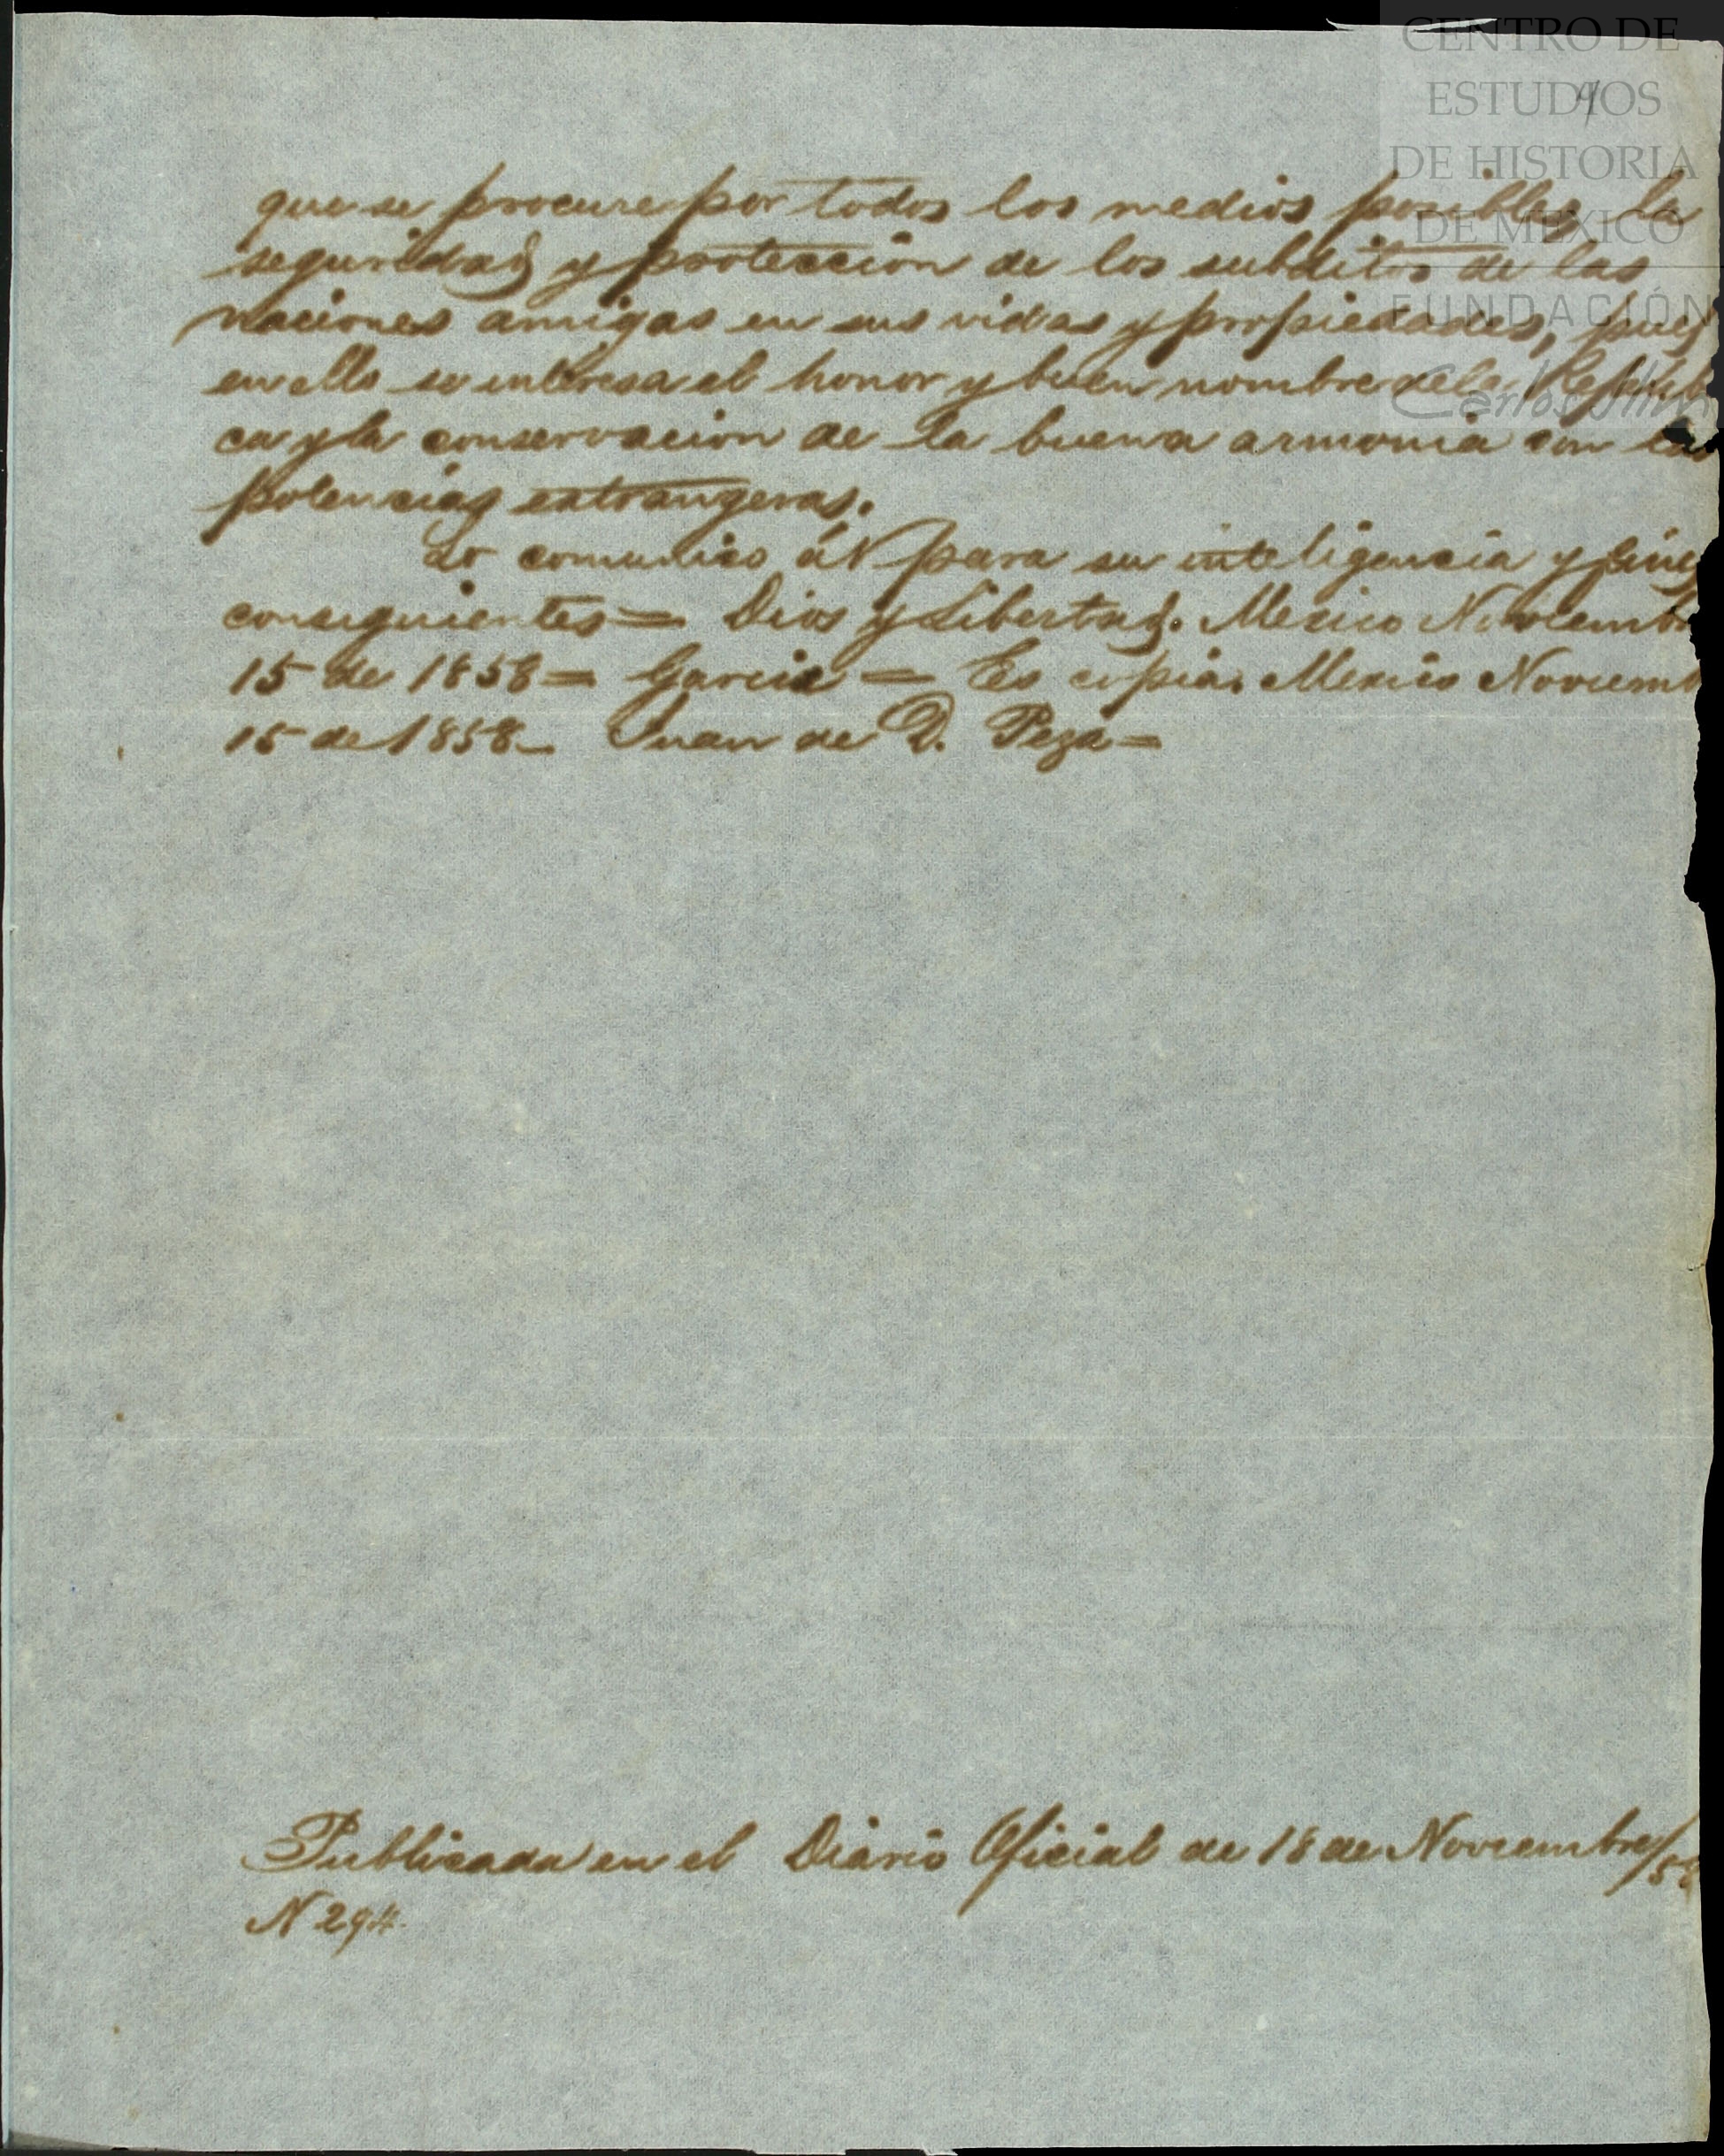 CENTRO DE
ESTUDIOS
DE HISTORIA
DE MEXICO
FUNDACIÓN
Carlos Slim
que se procure por todos los medios posibles la
seguridad y proteccion de los subditos de las
naciones amigas en sus vidas y propiedades, pues
en ello se interesa el honor y buen nombre de la Repúbli
ca y la conservacion de la buena armonia con las
potencias extrangeras.
Lo comunico á V para su inteligencia y fines
consiguientes = Dios y Libertad. Mexico Noviembre
15 de 1858 = Garcia = Es copia. Mexico Noviemb
15 de 1858 _ Juan de D. Peza =
Publicada en el Diario Oficial de 18 de Noviembre/58
N 294.